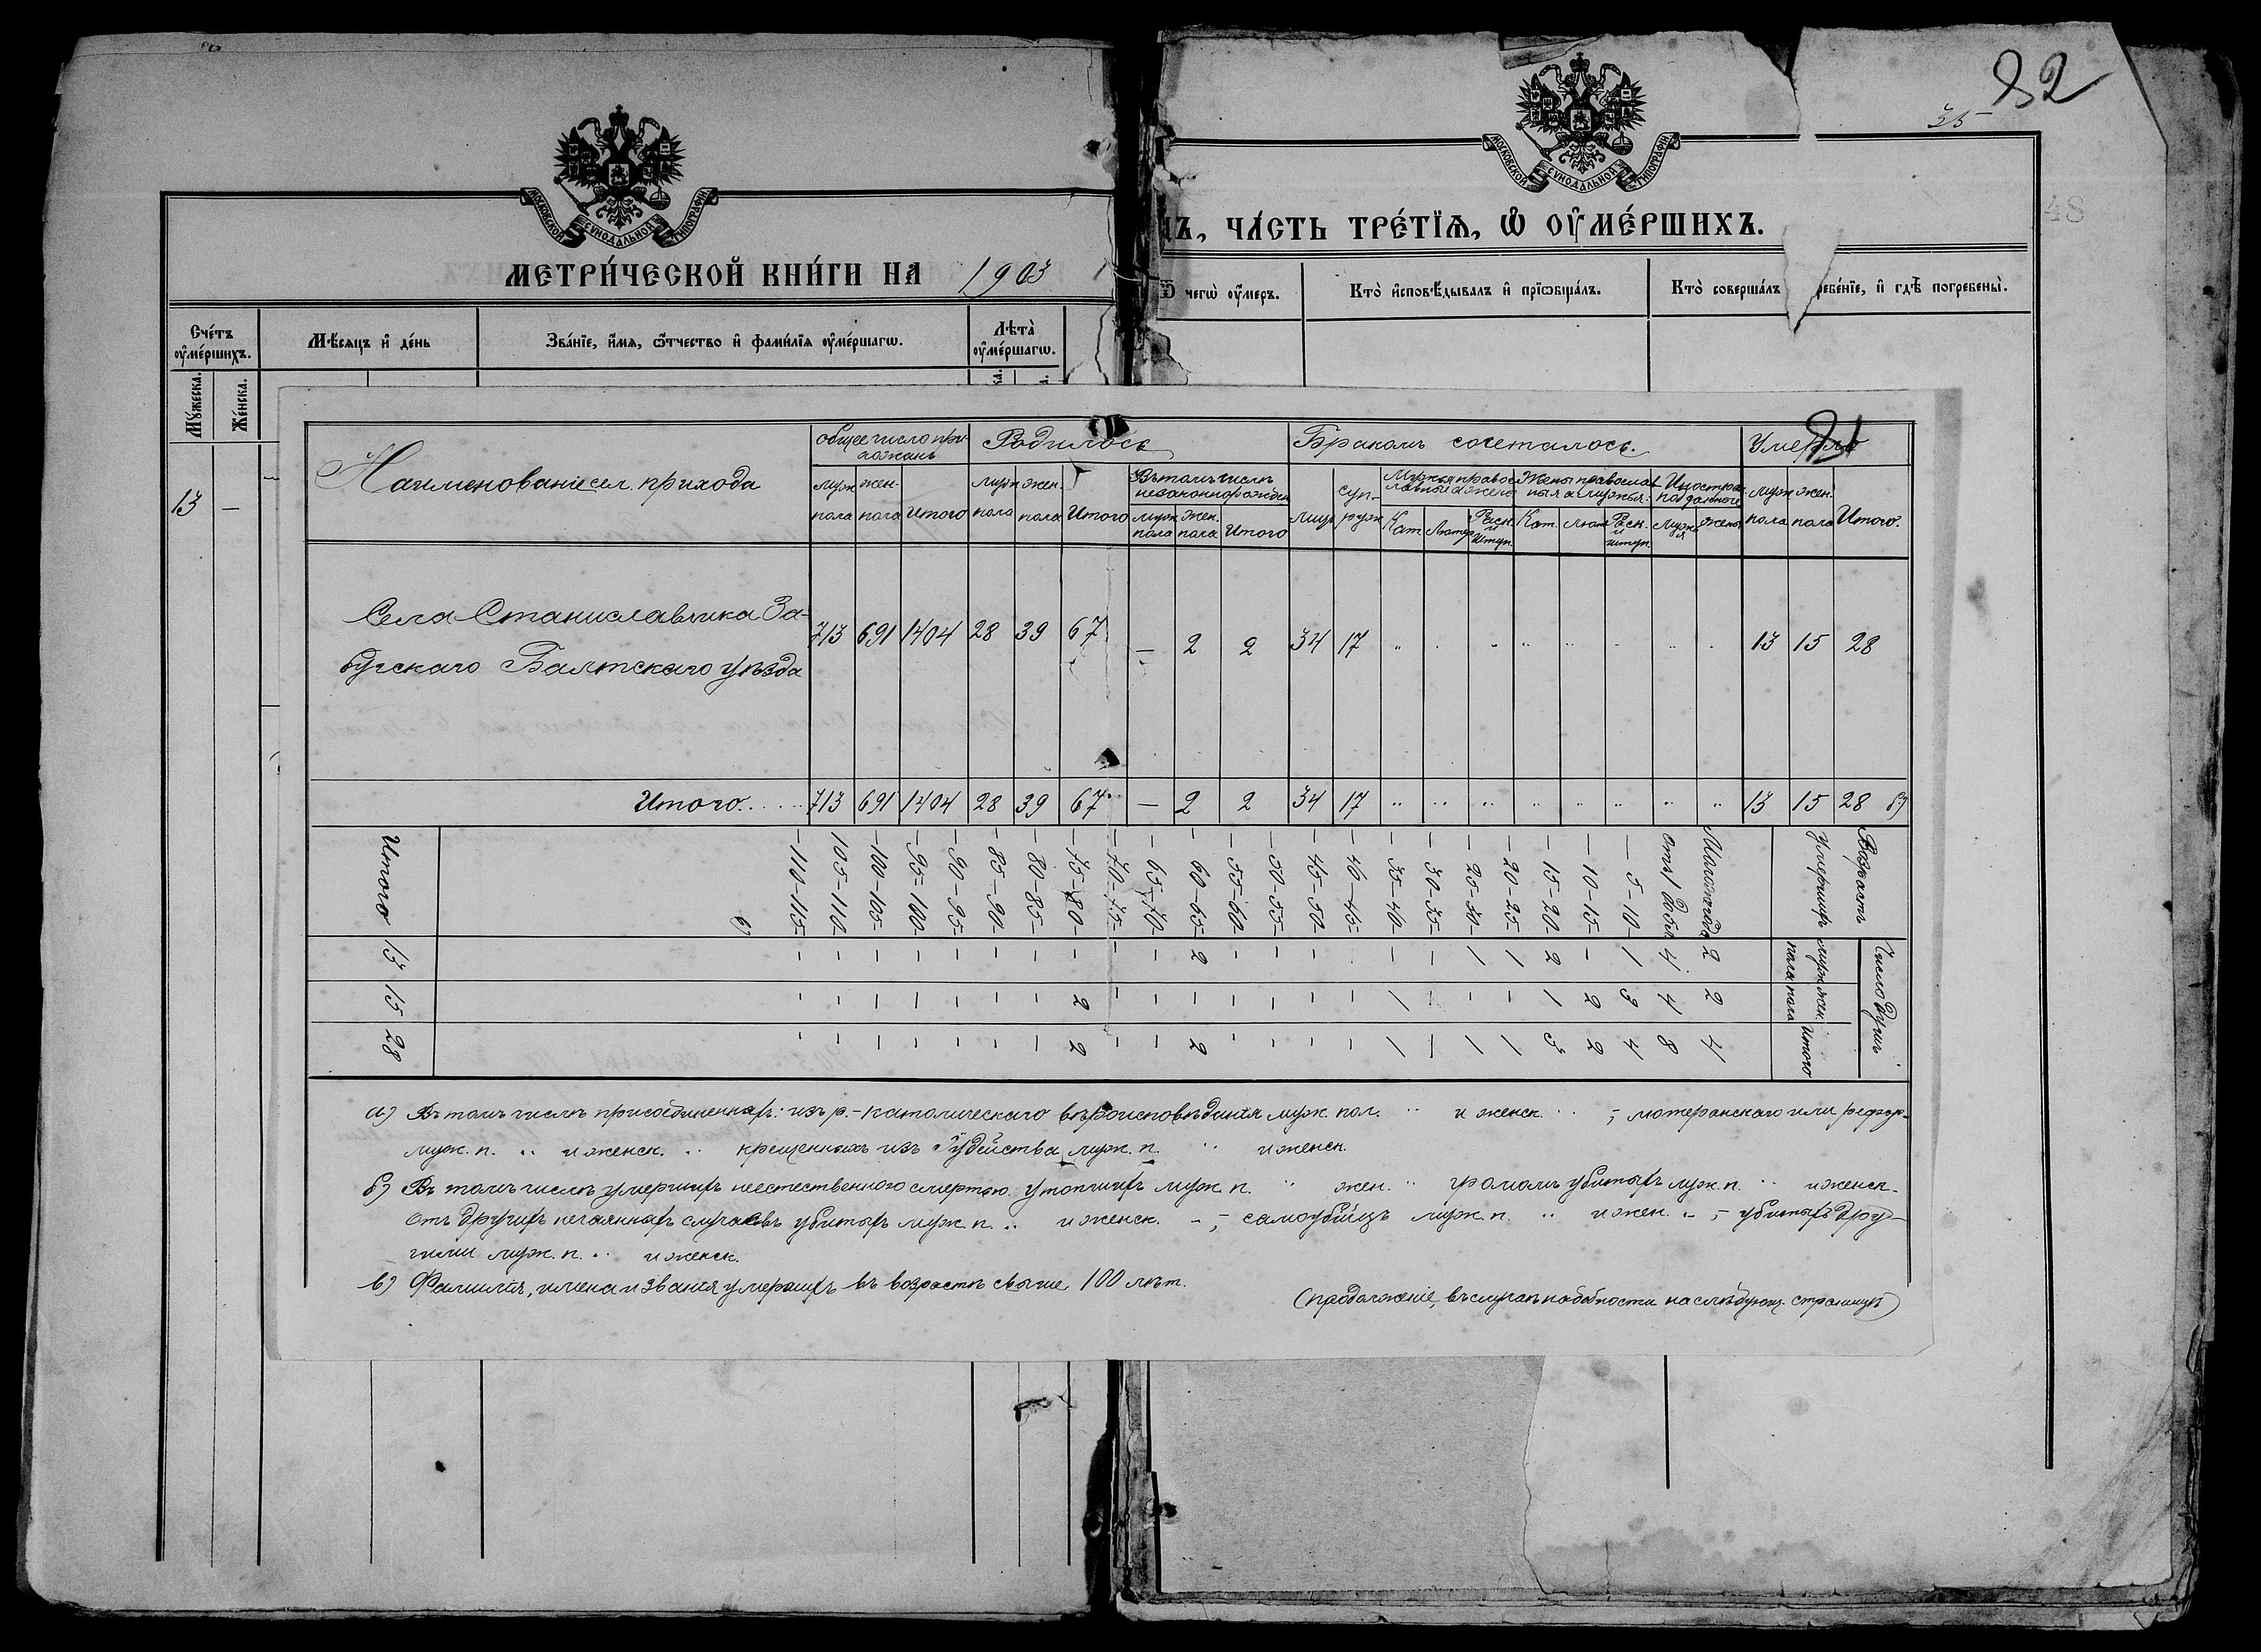 32
35
48
МОСКОВСКОЙ СѴНОДАЛЬНОЙ ТИПОГРАФІИ
МОСКОВСКОЙ СѴНОДАЛЬНОЙ ТИПОГРАФІИ
МЕТРИ́ЧЕСКОЙ КНИ́ГИ НА 1903
ЧА́СТЬ ТРЕ́ТЇѦ, Ѽ ОУ҆МЕ́РШИХЪ.
Сче́тъ оу҆ме́ршихъ.
Мѣ́сяцъ и҆ де́нь
Зва́нїе, и҆́мѧ, ѻ҆́тчество и҆ фами́лїѧ оу҆ме́ршагѡ.
Лѣ́та оу҆ме́ршагѡ.
Ѿ чегѡ̀ оу҆́меръ.
Кто̀ и҆сповѣ́дывалъ и҆ прїѡбща́лъ.
Кто̀ соверша́лъ ребе́нїе, и҆ гдѣ̀ погребены̀.
Мꙋ́жеска. Же́нска.
13 —
Наименованіе сел. прихода
общее число прихожанъ
Родилось
Бракомъ сочеталось.
Умерло
21
муж пола жен. пола Итого
муж пола жен. пола Итого
Въ томъ числѣ незаконнорожден
муж пола жен. пола Итого
Лицъ Супруж
Мужья православные а жены Кат. Лютер Раск. и штун.
Жены православныя а мужья: Кат. Лют Раск. и штун.
Иностран. подданные Мужья Жены
муж пола жен. пола Итого.
Села Станиславчика За-
бугскаго Балтскаго уѣзда
713 691 1404 28 39 67 — 2 2 34 17 " . " " " . " . 13 15 28
Итого..... 713 691 1404 28 39 67 — 2 2 34 17 " " " " " " " " 13 15 28 б)
Возрастъ умершихъ
Число душъ
муж пола жен. пола Итого
Младше года 2 2 4
Отъ 1 до 5 4 4 8
— 5–10 1 3 4
— 10–15 – 2 2
— 15–20 2 1 3
— 20–25 1 – 1
— 25–30 1 – 1
— 30–35 – 1
— 35–40 – 1 1
— 40–45 – –
— 45–50 – – –
— 50–55 – – –
— 55–60 – – –
— 60–65 2 – 2
— 65–70 – – –
— 70–75 – – –
— 75–80 – 2 2
— 80–85 – – –
— 85–90 – – –
— 90–95 – – –
— 95–100 – – –
— 100–105 – – –
105–110 – – –
— 110–115 – – –
Итого 13 15 28
а) Въ томъ числѣ присоединенныхъ: изъ р.-католическаго вѣроисповѣданія муж. пол. " и женск. " ; лютеранскаго или рефор-
муж. п. " и женск. " крещенныхъ изъ Іудейства муж. п. " и женск.
б) Въ томъ числѣ умершихъ неестественною смертью. утопшихъ муж. п. " жен. " громомъ убитыхъ муж. п. " и женск.
Отъ другихъ нечаянныхъ случаевъ убитыхъ муж. п. " и женск. – ; самоубійцъ муж. п. " и жен. – ; убитыхъ дру-
гими муж. п. " и женск.
в) Фамилія, имена и званія умершихъ въ возрастѣ свыше 100 лѣт.
(продолженіе, въ случаѣ надобности на слѣдующ. страницѣ)